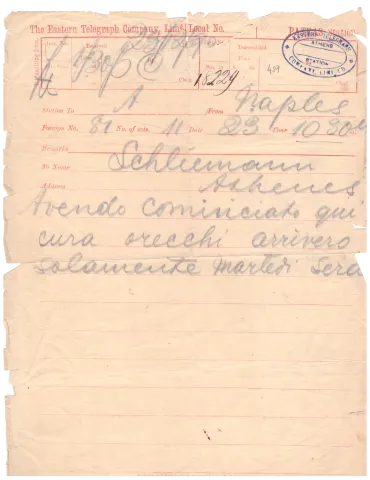 The Eastern Telegraph Company, Limd. Local No.
Station
EASTERN TELEGRAPH
ATHENS
STATION
COMPANY, LIMITED
409
Class
18229
Station To A From Naples
Foreign No. 81 No. of wds. 11 Date 23 Time 10 30
To Name Schliemann
Address Athenes
Avendo cominciato qui
cura orecchi arrivero
solamente martedi sera